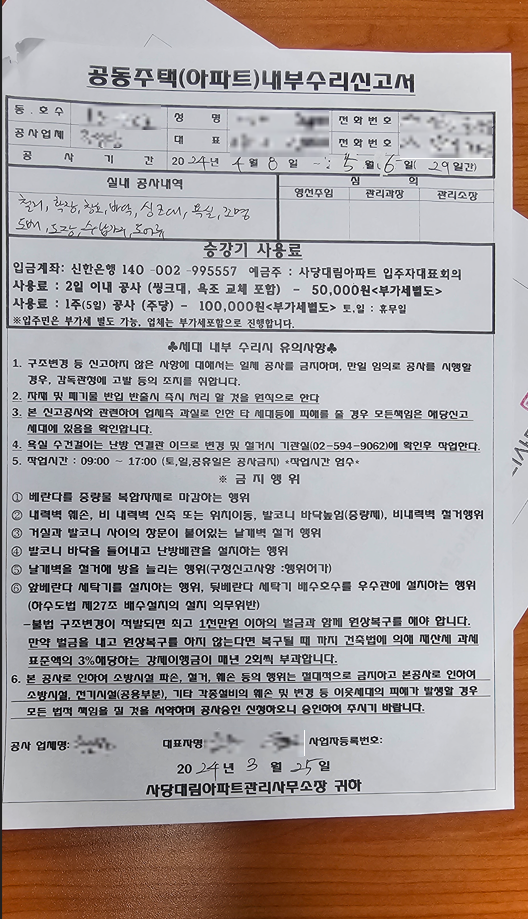 공동주택(아파트)내부수리신고서
동.호수 성 명 전화번호
공사업체 대 표 전화번호
공 사 기 간 2024년 4월 8일 -: 5월 6일( 29일간)
실내 공사내역 심 의
영선주임 관리과장 관리소장
철거, 확장, 창호, 바닥, 싱크대, 욕실, 조명
도배, 도장, 수납가구, 도어류
승강기 사용료
입금계좌: 신한은행 140 -002 -995557 예금주 : 사당대림아파트 입주자대표회의
사용료 : 2일 이내 공사 (씽크대, 욕조 교체 포함) - 50,000원<부가세별도>
사용료 : 1주(5일) 공사 (주당) - 100,000원<부가세별도> 토,일 : 휴무일
※입주민은 부가세 별도 가능, 업체는 부가세포함으로 진행합니다.
♣세대 내부 수리시 유의사항♣
1. 구조변경 등 신고하지 않은 사항에 대해서는 일체 공사를 금지하며, 만일 임의로 공사를 시행할
경우, 감독관청에 고발 등의 조치를 취합니다.
2. 자재 및 폐기물 반입 반출시 즉시 처리 할 것을 원칙으로 한다
3. 본 신고공사와 관련하여 업체측 과실로 인한 타 세대등에 피해를 줄 경우 모든책임은 해당신고
세대에 있음을 확인합니다.
4. 욕실 수건걸이는 난방 연결관 이므로 변경 및 철거시 기관실(02-594-9062)에 확인후 작업한다.
5. 작업시간 : 09:00 ~ 17:00 (토,일,공휴일은 공사금지) *작업시간 엄수*
※ 금 지 행 위
① 베란다를 중량물 복합자재로 마감하는 행위
② 내력벽 훼손, 비 내력벽 신축 또는 위치이동, 발코니 바닥높임(중량제), 비내력벽 철거행위
③ 거실과 발코니 사이의 창문이 붙어있는 날개벽 철거 행위
④ 발코니 바닥을 들어내고 난방배관을 설치하는 행위
⑤ 날개벽을 철거에 방을 늘리는 행위(구청신고사항 :행위허가)
⑥ 앞베란다 세탁기를 설치하는 행위, 뒷베란다 세탁기 배수호수를 우수관에 설치하는 행위
(하수도법 제27조 배수설치의 설치 의무위반)
-불법 구조변경이 적발되면 최고 1천만원 이하의 벌금과 함께 원상복구를 해야 합니다.
만약 벌금을 내고 원상복구를 하지 않는다면 복구될 때 까지 건축법에 의해 재산세 과세
표준액의 3%해당하는 강제이행금이 매년 2회씩 부과합니다.
6. 본 공사로 인하여 소방시설 파손, 철거, 훼손 등의 행위는 절대적으로 금지하고 본공사로 인하여
소방시설, 전기시설(공용부분), 기타 각종설비의 훼손 및 변경 등 이웃세대의 피해가 발생할 경우
모든 법적 책임을 질 것을 서약하며 공사승인 신청하오니 승인하여 주시기 바랍니다.
공사 업체명: 대표자명: 사업자등록번호:
2024년 3 월 25일
사당대림아파트관리사무소장 귀하